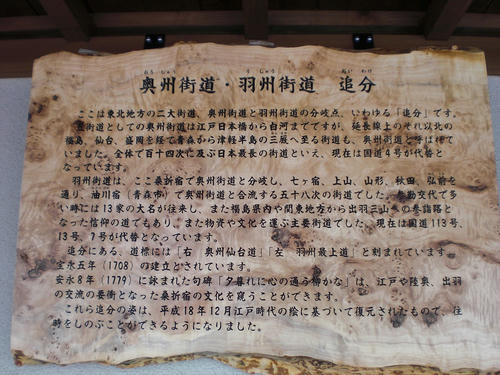 おうしゅう うしゅう おいわけ
奥州街道・羽州街道 追分
ここは東北地方の二大街道、奥州街道と羽州街道の分岐点、いわゆる「追分」です。
街道としての奥州街道は江戸日本橋から白河までですが、延長線上のそれ以北の
福島、仙台、盛岡を経て青森から津軽半島の三厩へ至る街道も、奥州街道と呼ばれて
いました。全体で百十四次に及ぶ日本最長の街道といえ、現在は国道4号が代替と
なっています。
羽州街道は、ここ桑折宿で奥州街道と分岐し、七ヶ宿、上山、山形、秋田、弘前を
通り、油川宿（青森市）で奥州街道と合流する五十八次の街道でした。参勤交代で多
い時には13家の大名が往来し、また福島県内や関東地方から出羽三山への参詣路と
なった信仰の道でもあり、また物資や文化を運ぶ主要街道でした。現在は国道113号、
13号、7号が代替となっています。
追分にある、道標には「右 奥州仙台道」「左 羽州最上道」と刻まれています。
宝永五年（1708）の建立とされています。
安永8年（1779）に詠まれた句碑「夕暮れに心の通う柳かな」は、江戸や陸奥、出羽
の交流の要衝となった桑折宿の文化を窺うことができます。
これら追分の姿は、平成18年12月江戸時代の絵に基づいて復元されたもので、往
時をしのぶことができるようになりました。